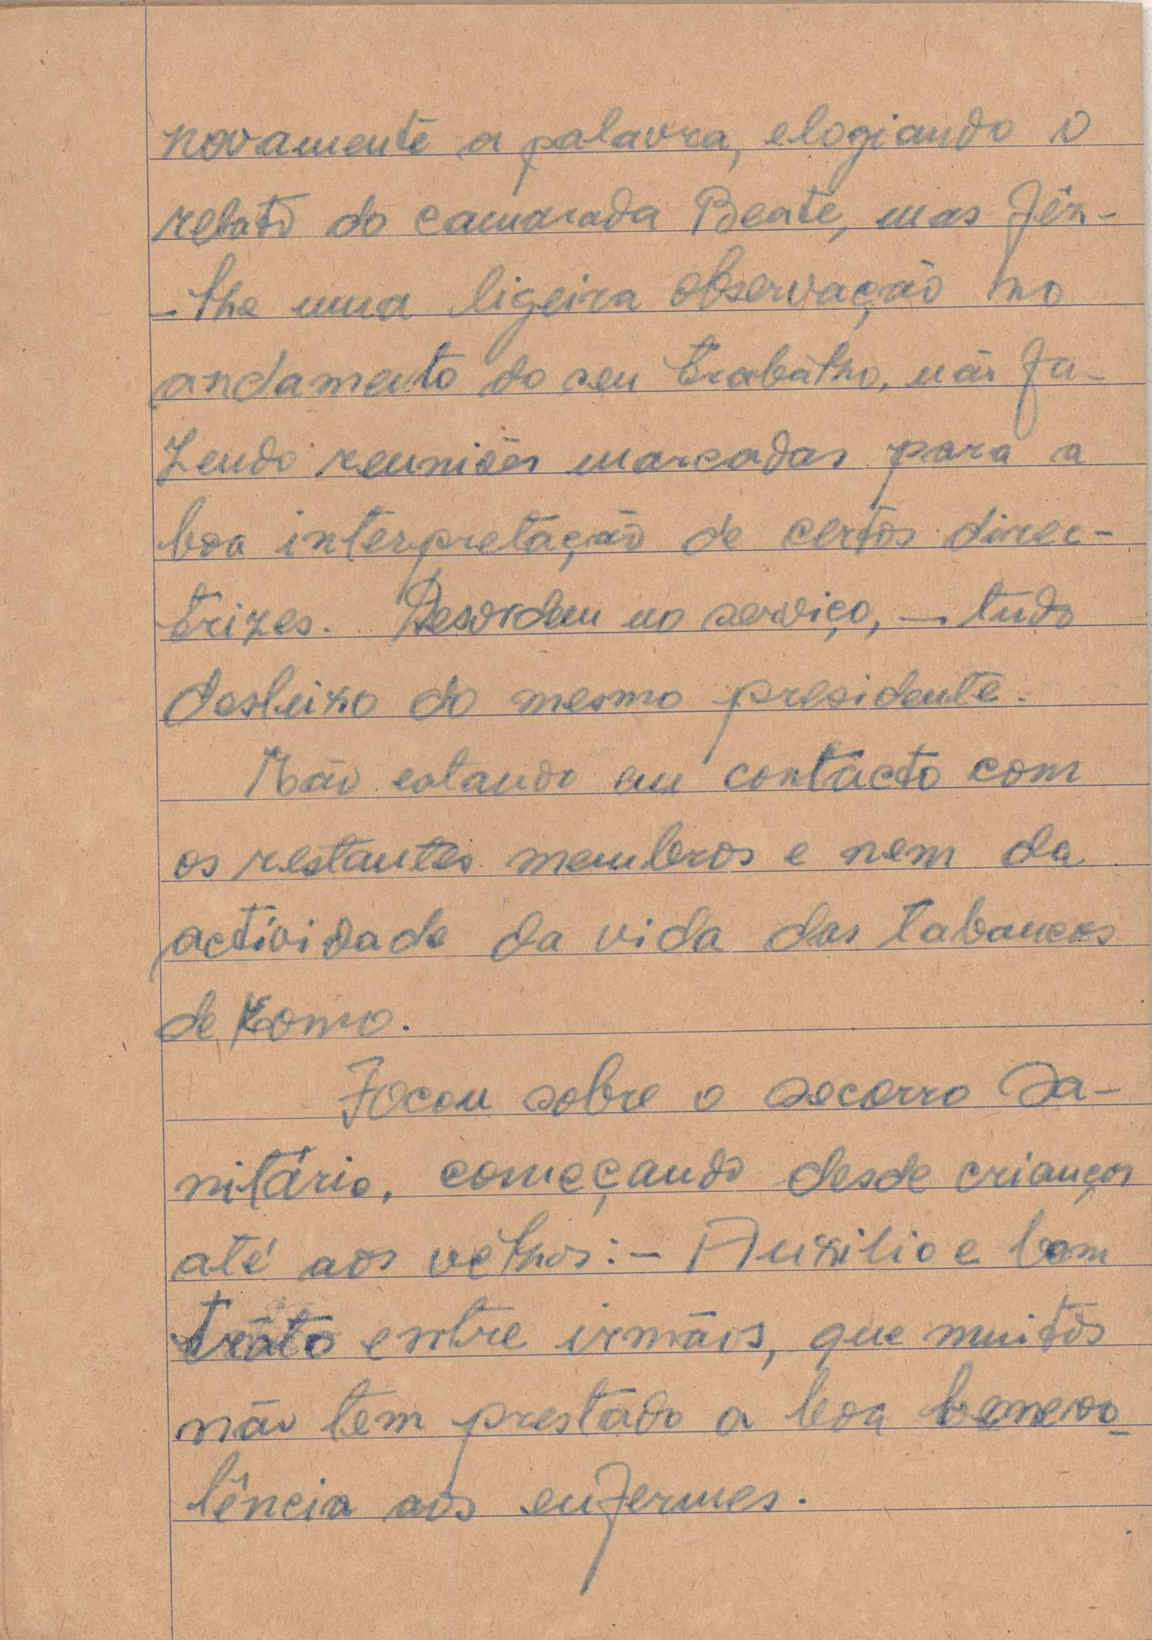 novamente a palavra, elogiando o
relato do camarada Beate, mas fêz-
-lhe uma ligeira observação no
andamento do seu trabalho, não fa-
zendo reuniões marcadas para a
boa interpretação de certos direc-
trizes. Desordem no serviço, — tudo
desleixo do mesmo presidente.
Não estando em contacto com
os restantes membros e nem da
actividade da vida das tabancas
de Komo.
Focou sobre o socorro Sa-
nitário, começando desde crianças
até aos velhos:- Auxilio e bom
trato entre irmãos, que muitos
não tem prestado a boa benevo-
lência aos enfermes.